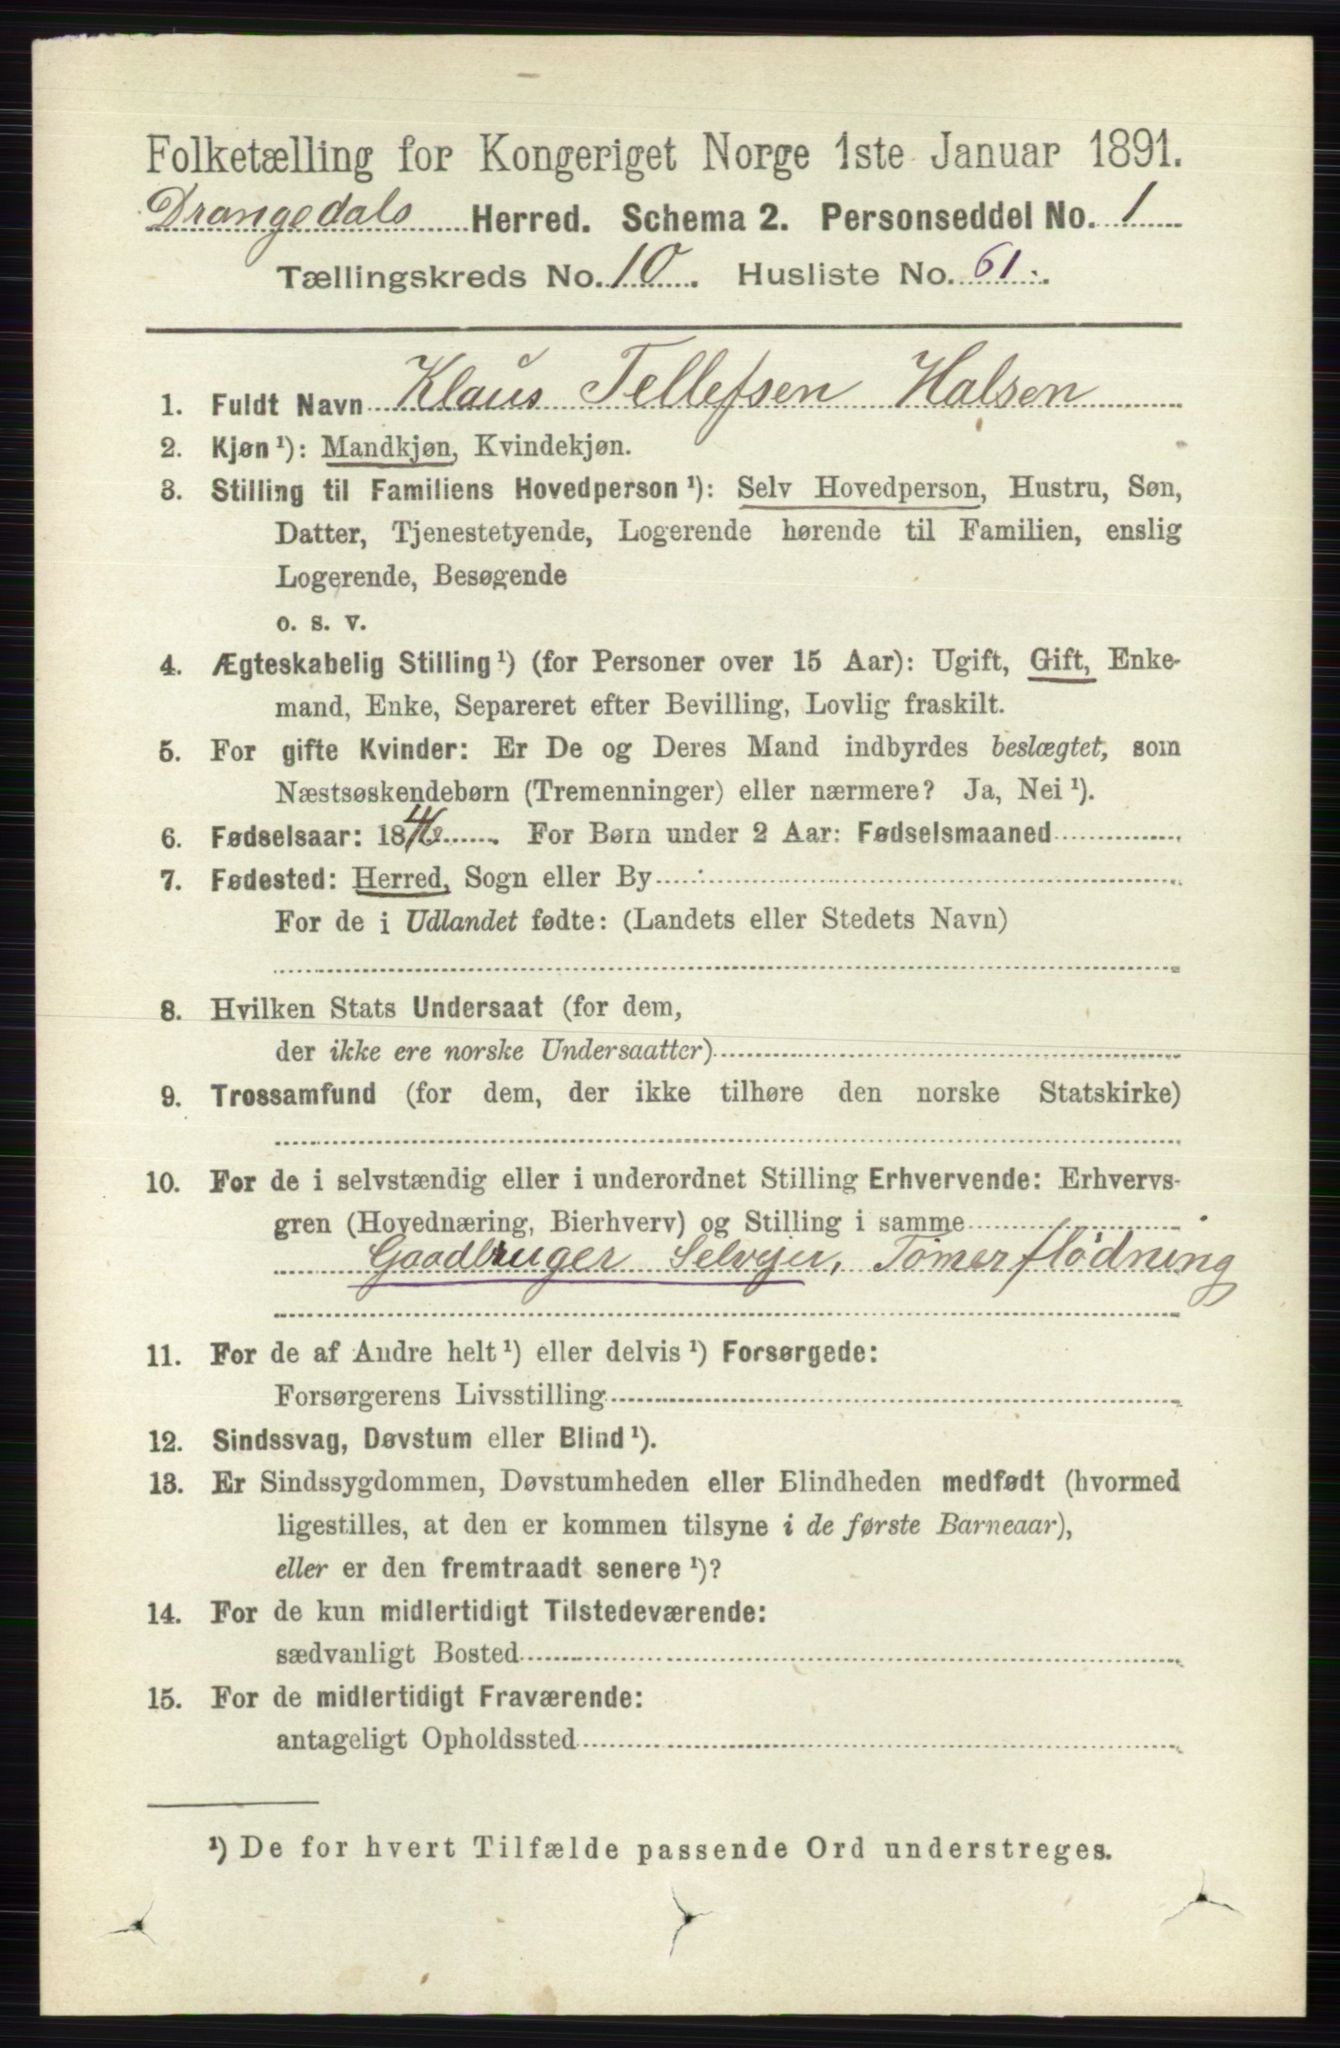 Folketælling for Kongeriget Norge 1ste Januar 1891.
Drangedals Herred. Schema 2. Personseddel No. 1
Tællingskreds No. 10. Husliste No. 61.
1. Fuldt Navn Klaus Tellefsen Halsen
2. Kjøn ¹): Mandkjøn, Kvindekjøn.
3. Stilling til Familiens Hovedperson ¹): Selv Hovedperson, Hustru, Søn,
Datter, Tjenestetyende, Logerende hørende til Familien, enslig
Logerende, Besøgende
o. s. v.
4. Ægteskabelig Stilling ¹) (for Personer over 15 Aar): Ugift, Gift, Enke-
mand, Enke, Separeret efter Bevilling, Lovlig fraskilt.
5. For gifte Kvinder: Er De og Deres Mand indbyrdes beslægtet, som
Næstsøskendebørn (Tremenninger) eller nærmere? Ja, Nei ¹).
6. Fødselsaar: 1846. For Børn under 2 Aar: Fødselsmaaned
7. Fødested: Herred, Sogn eller By
For de i Udlandet fødte: (Landets eller Stedets Navn)
8. Hvilken Stats Undersaat (for dem,
der ikke ere norske Undersaatter)
9. Trossamfund (for dem, der ikke tilhøre den norske Statskirke)
10. For de i selvstændig eller i underordnet Stilling Erhvervende: Erhvervs-
gren (Hovednæring, Bierhverv) og Stilling i samme
Gaadbruger Selvejer, Tømerflödning
11. For de af Andre helt ¹) eller delvis ¹) Forsørgede:
Forsørgerens Livsstilling
12. Sindssvag, Døvstum eller Blind ¹).
13. Er Sindssygdommen, Døvstumheden eller Blindheden medfødt (hvormed
ligestilles, at den er kommen tilsyne i de første Barneaar),
eller er den fremtraadt senere ¹)?
14. For de kun midlertidigt Tilstedeværende:
sædvanligt Bosted
15. For de midlertidigt Fraværende:
antageligt Opholdssted
¹) De for hvert Tilfælde passende Ord understreges.